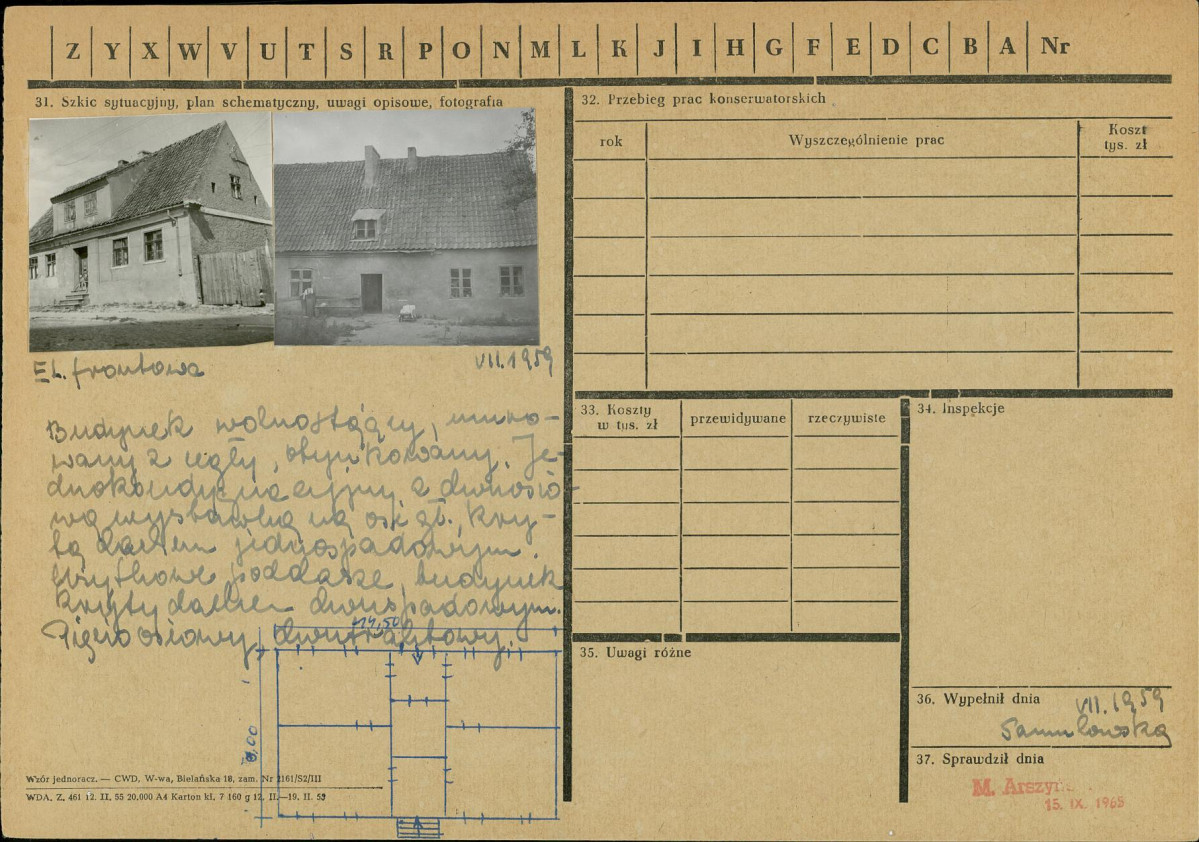 Z Y X W V U T S R P O N M L K J I H G F E D C B A Nr
31. Szkic sytuacyjny, plan schematyczny, uwagi opisowe, fotografia
El. frontowa
VII.1959
Budynek wolnostojący, muro-
wany z cegły, otynkowany. Je-
dnokondygnacyjny, z dwuosio-
wą wystawką na osi gł., kry-
tą dachem jednospadowym.
Użytkowe poddasze, budynek
kryty dachem dwuspadowym.
Pięcioosiowy, dwutraktowy.
14,50
Wzór jednoracz. — CWD, W-wa, Bielańska 18, zam. Nr 2161/S2/III
WDA. Z. 461 12. II. 55 20.000 A4 Karton kl. 7 160 g 12. II.—19. II. 53
32. Przebieg prac konserwatorskich
rok
Wyszczególnienie prac
Koszt
tys. zł
33. Koszty
w tys. zł
przewidywane
rzeczywiste
34. Inspekcje
35. Uwagi różne
36. Wypełnił dnia
VII.1959
37. Sprawdził dnia
15. IX. 1965